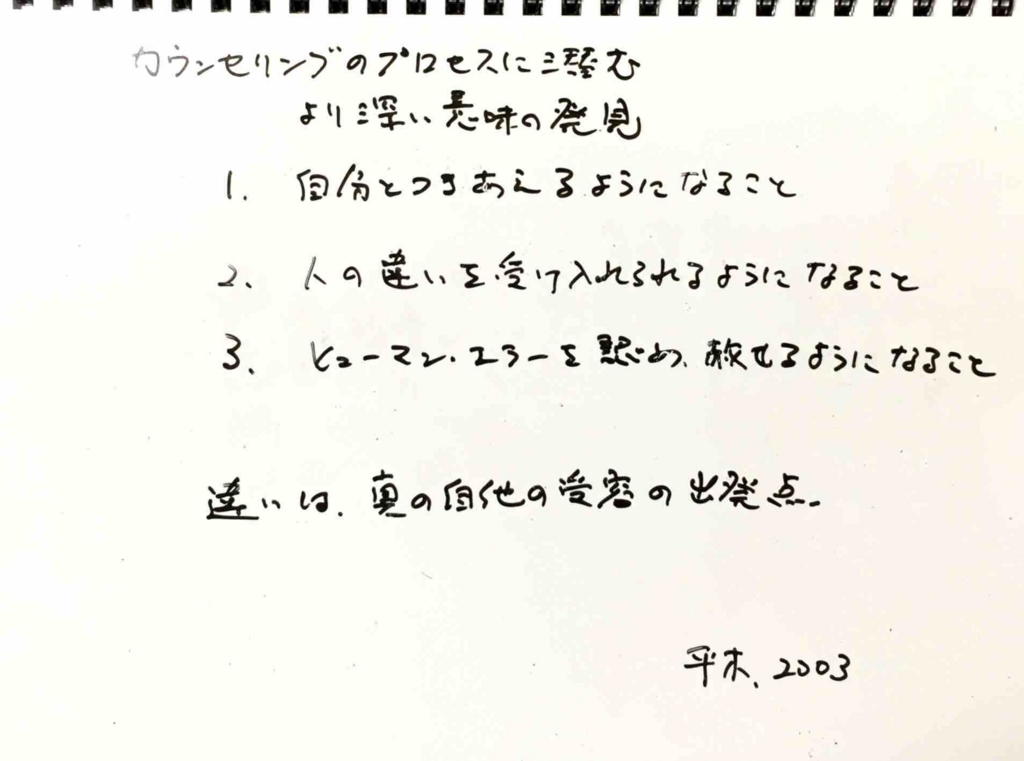 カウンセリングのプロセスに潜む
より深い意味の発見
1. 自分とつきあえるようになること
2. 人の違いを受け入れられるようになること
3. ヒューマン・エラーを認め、赦せるようになること
違いは、真の自他の受容の出発点。
平木、2003